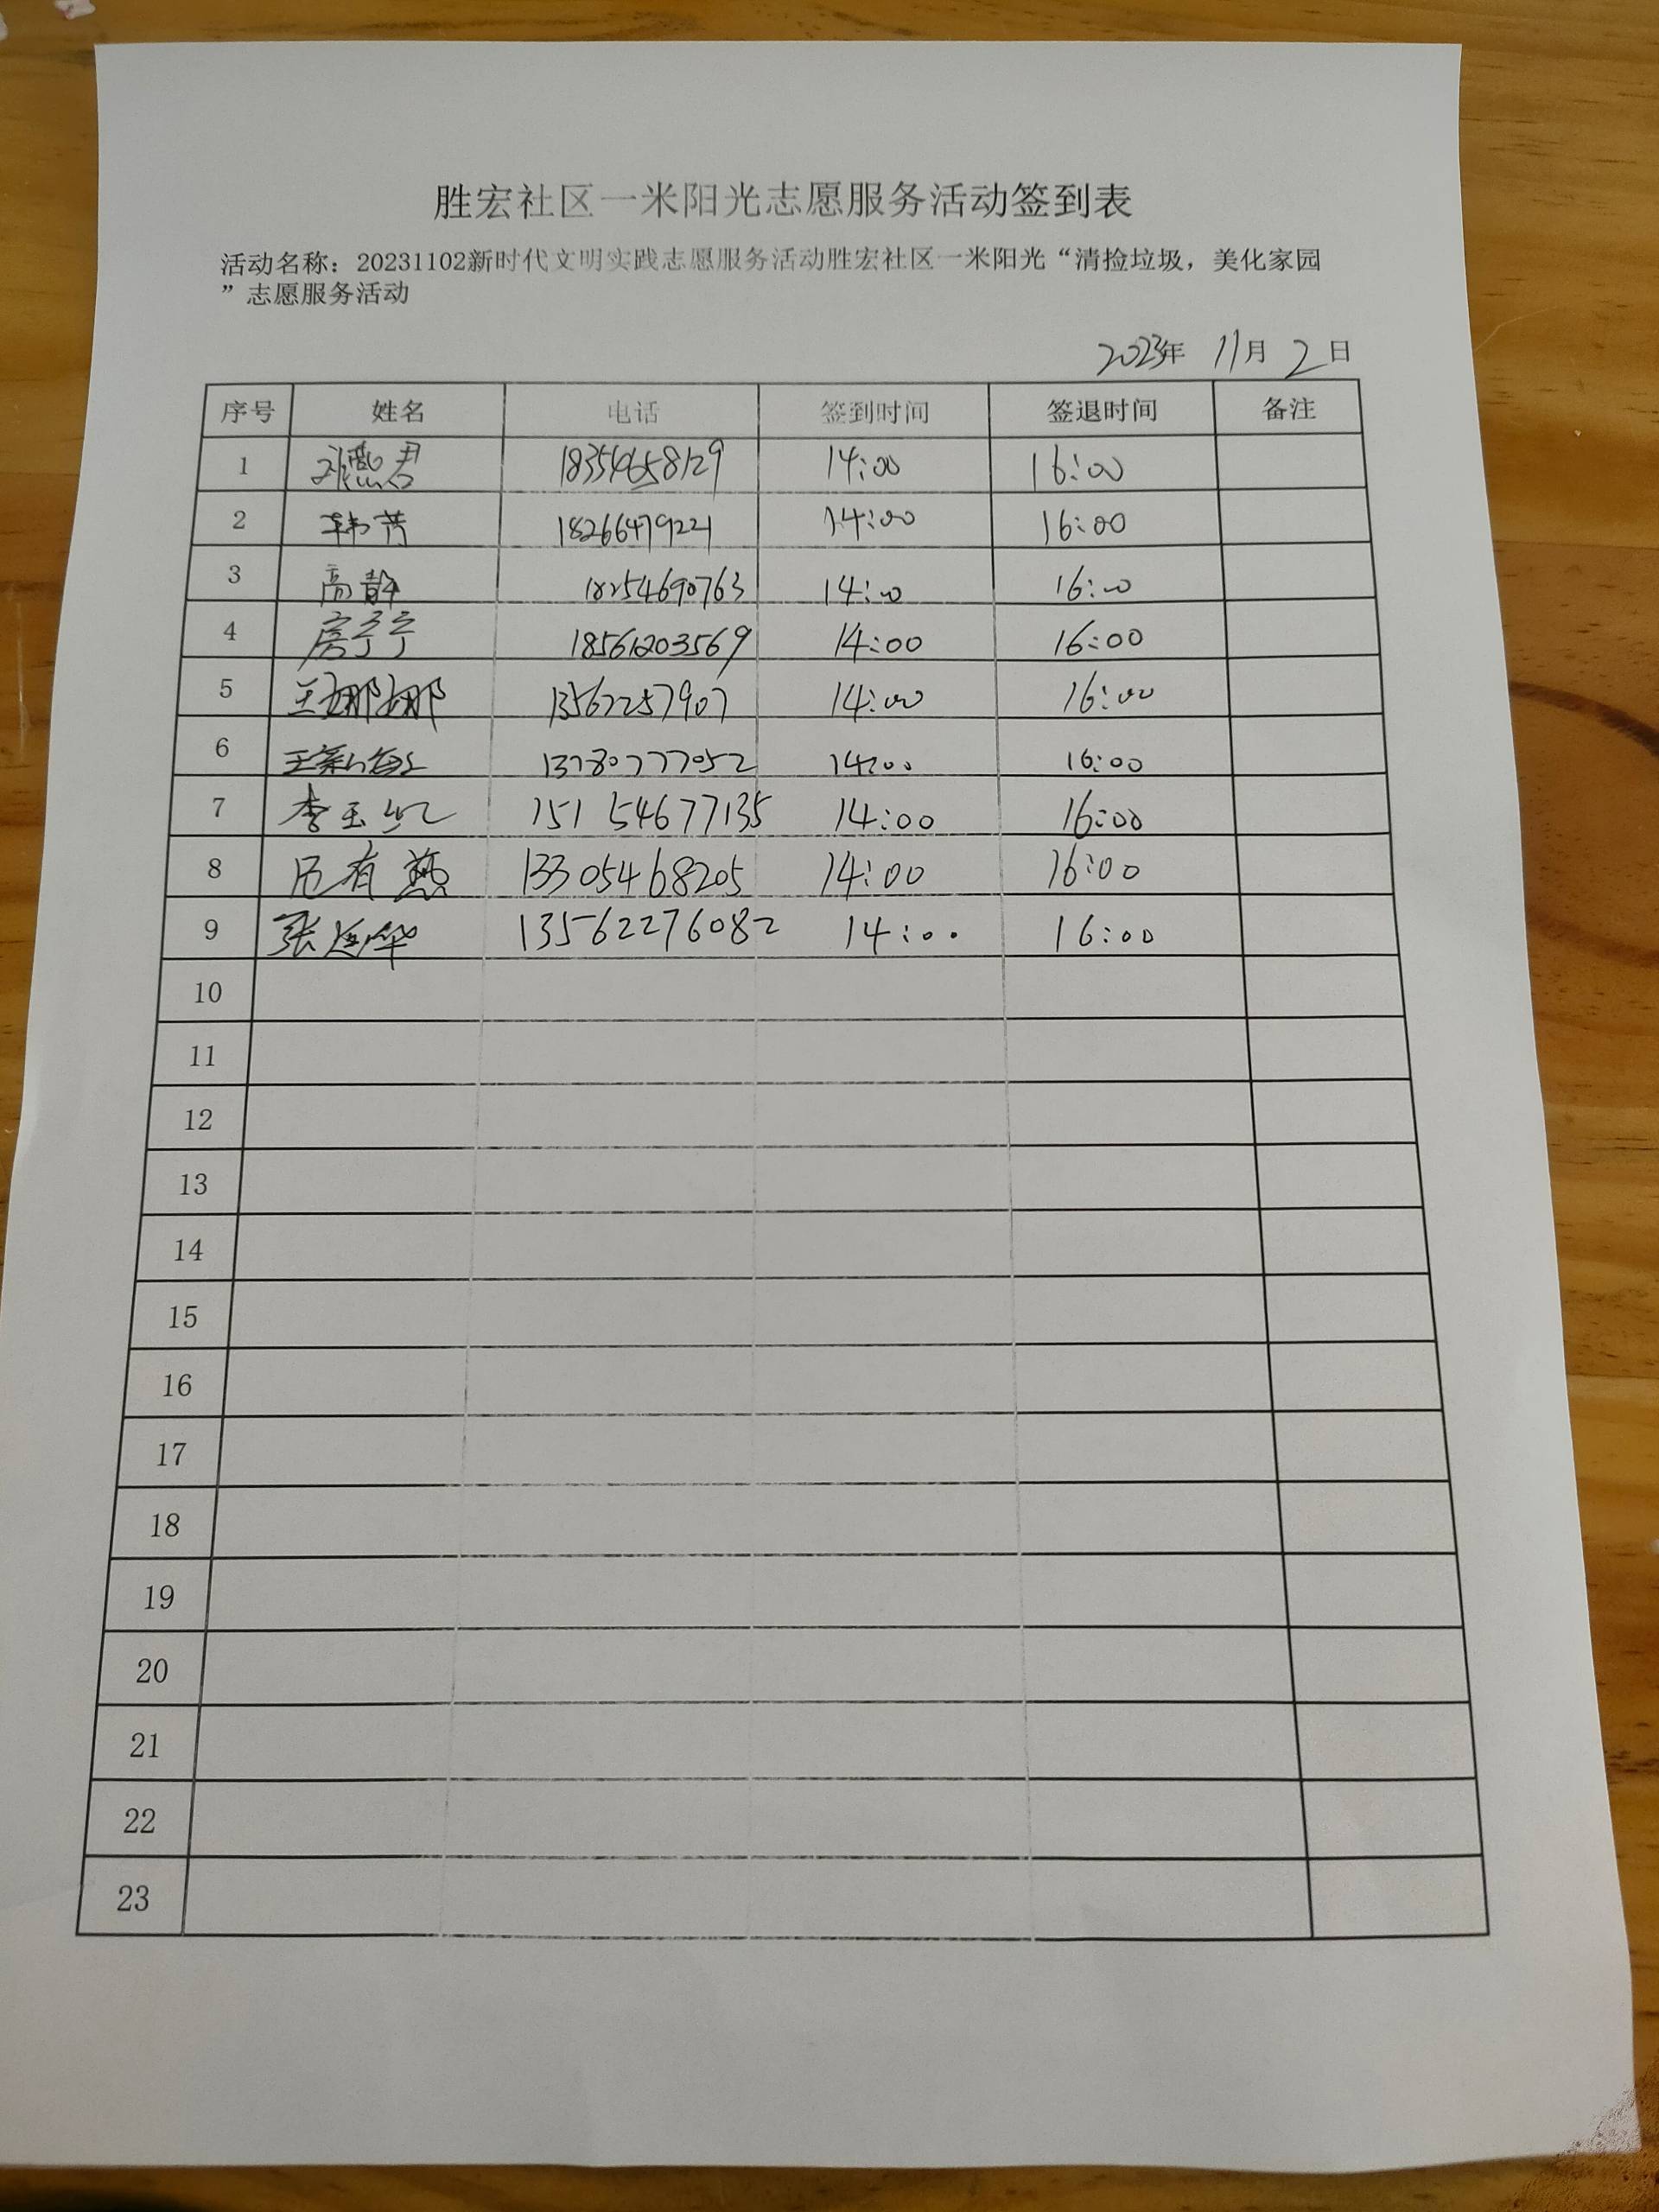 胜宏社区一米阳光志愿服务活动签到表
活动名称：20231102新时代文明实践志愿服务活动胜宏社区一米阳光“清捡垃圾，美化家园
”志愿服务活动
2023年 11月 2日
序号 姓名 电话 签到时间 签退时间 备注
1 君 18354658129 14:00 16:00
2 韩芳 18266479221 14:00 16:00
3 高静 18254690763 14:00 16:00
4 房宁宁 18561203569 14:00 16:00
5 王娜娜 13562257907 14:00 16:00
6 王 13780777052 14:00 16:00
7 李玉红 15154677135 14:00 16:00
8 吕有燕 13305468205 14:00 16:00
9 张莲华 13562276082 14:00 16:00
10
11
12
13
14
15
16
17
18
19
20
21
22
23